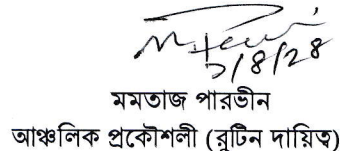 মমতাজ পারভীন
আঞ্চলিক প্রকৌশলী (রুটিন দায়িত্ব)